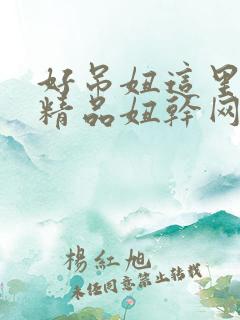 好吊妞這里
精品妞幹网
楊紅旭
未经同意禁止转载